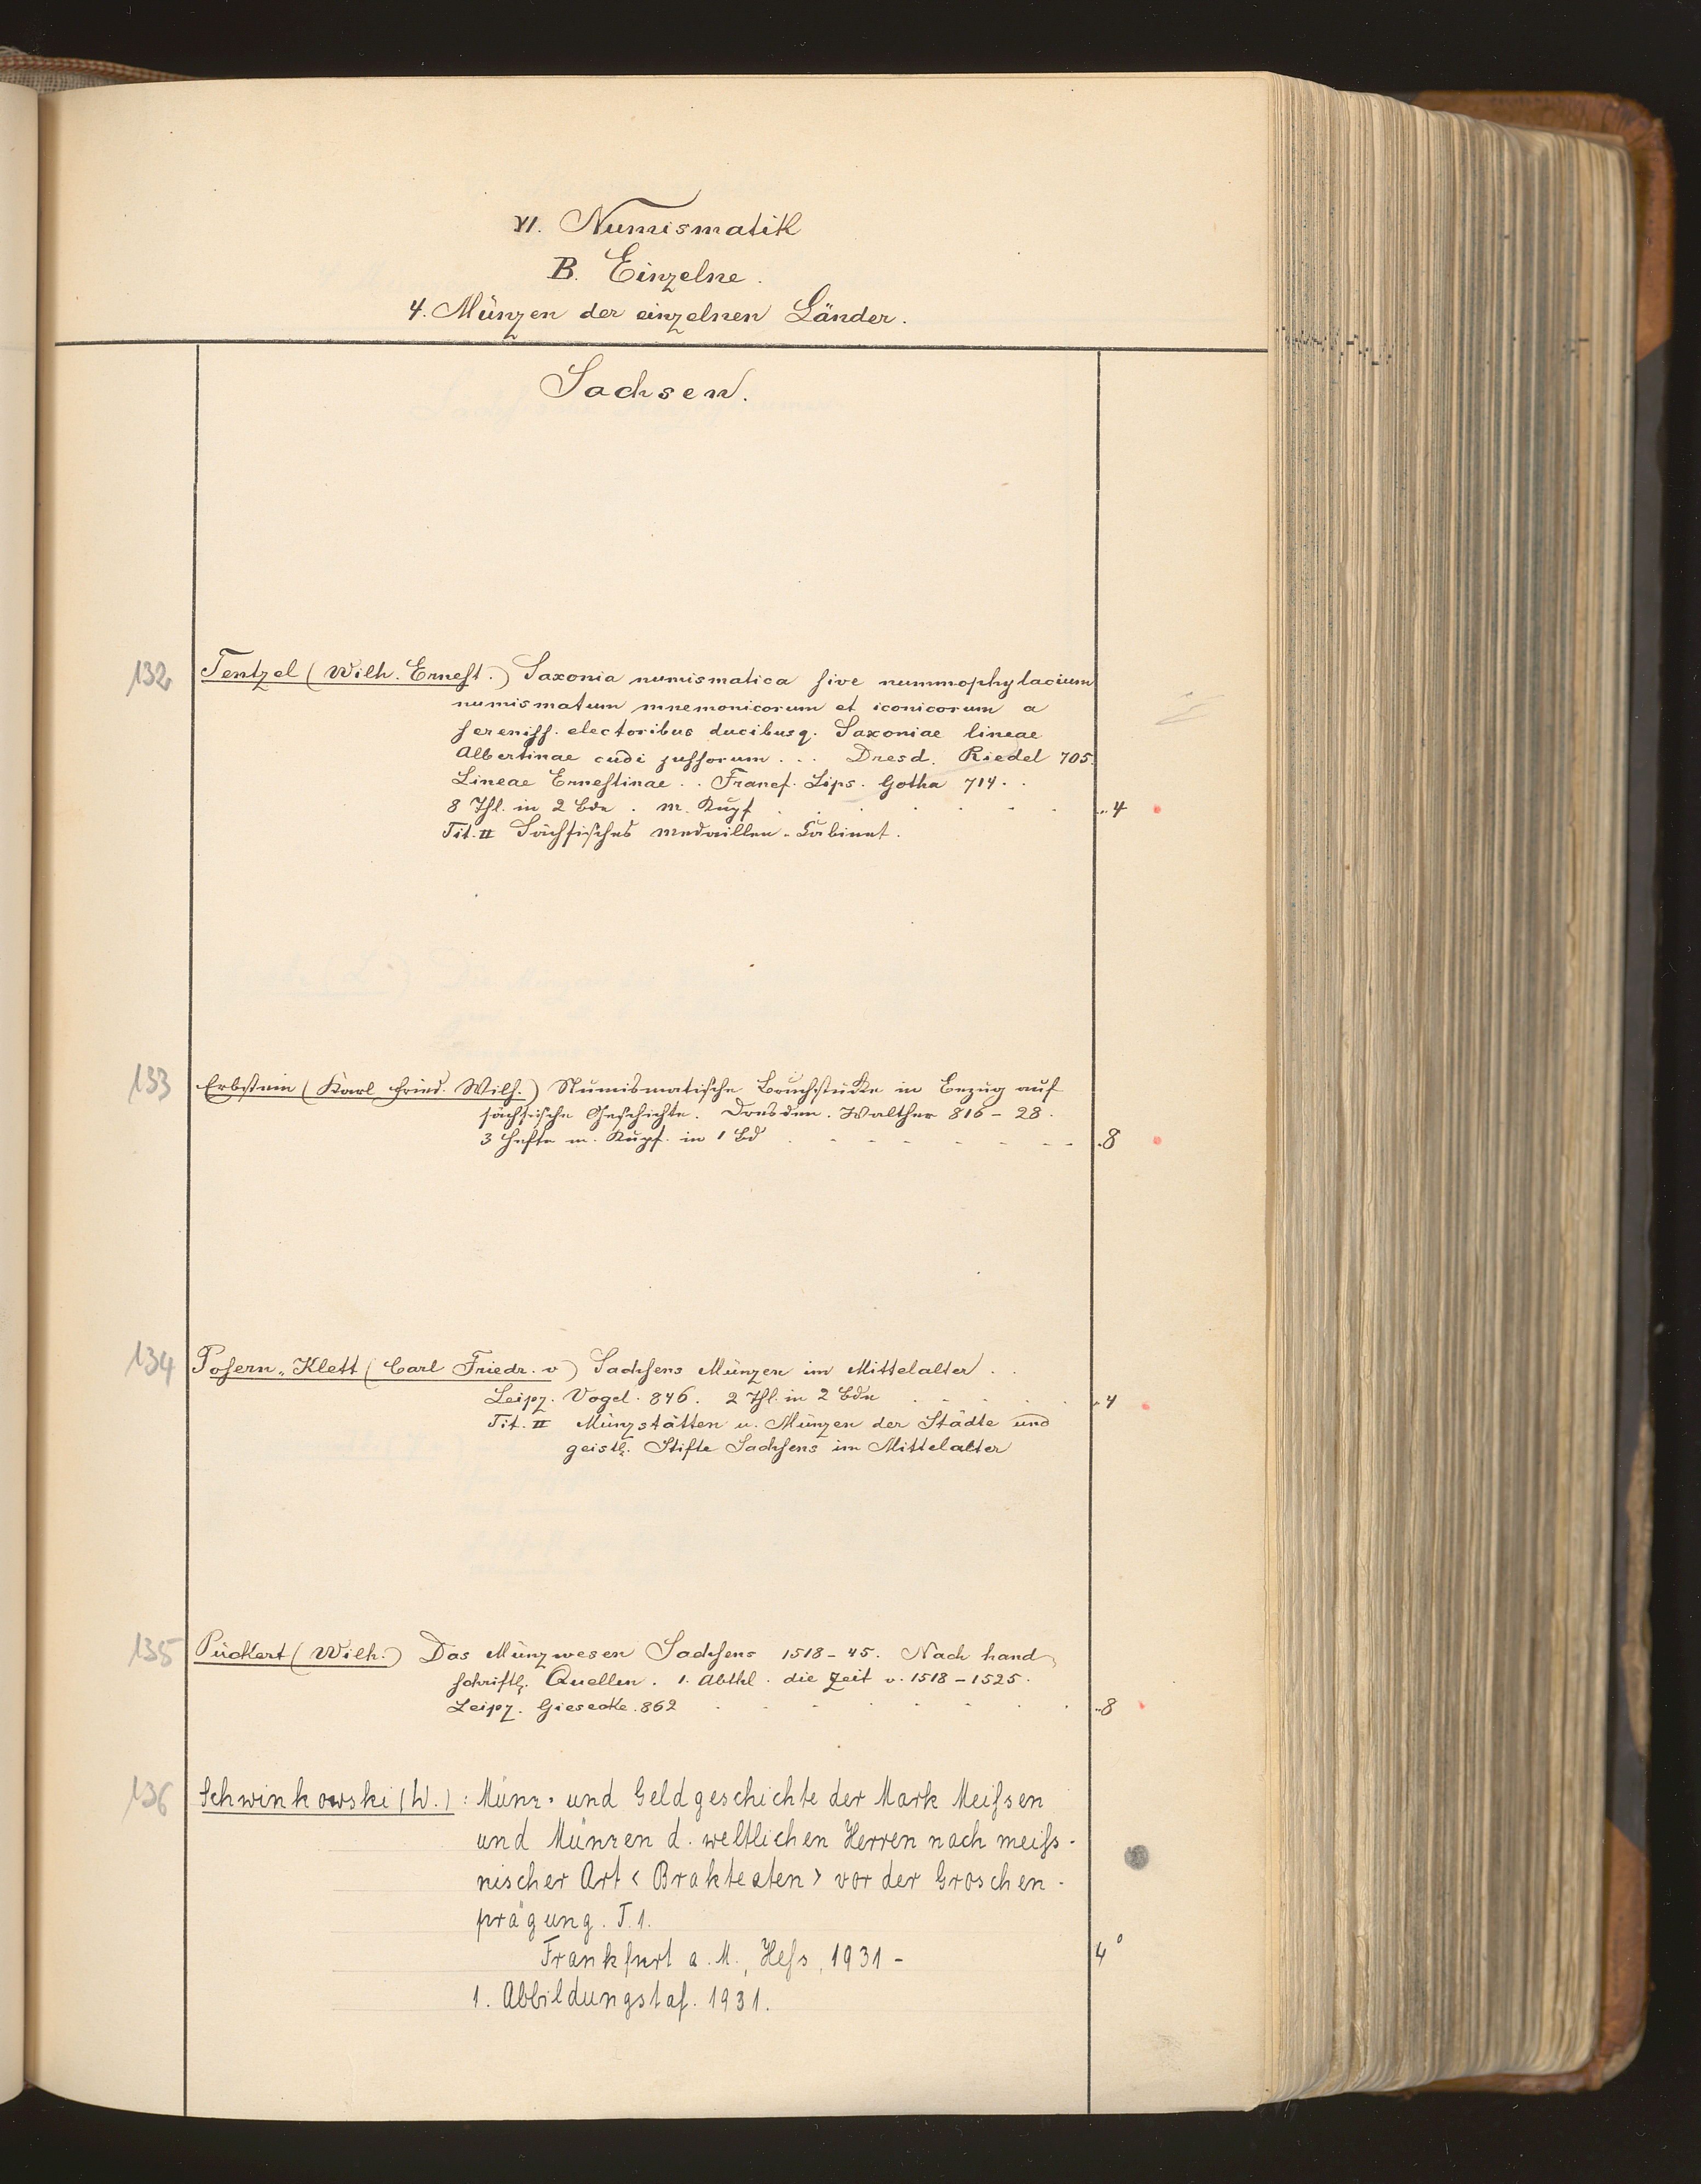 VI. Numismatik
B. Einzelne.
4. Münzen der einzelnen Länder.
Sachsen.
132 Tentzel (Wilh. Ernest.) Saxonia numismatica sive nummophylacium
numismatum mnemonicorum et iconicorum a
sereniss. electoribus ducibusq. Saxoniae lineae
Albertinae cudi jussorum ... Dresd. Riedel 705.
Lineae Ernestinae .. Francf. Lips. Gotha 714. .
8 Thl. in 2 Bde. m. Kupf. 4
Tit. II Sächsisches Medaillen-Cabinet.
133 Erbstein (Karl Fried. Wilh.) Numismatische Bruchstücke in Bezug auf
sächsische Geschichte. Dresden. Walther 816-28.
3 Hefte m. Kupf. in 1 Bd 8
134 Posern-Klett (Carl Friedr. v) Sachsens Münzen im Mittelalter . .
Leipz. Vogel. 846. 2 Thl. in 2 Bde 4
Tit. II Münzstätten u. Münzen der Städte und
geistl. Stifte Sachsens im Mittelalter
135 Pückert (Wilh.) Das Münzwesen Sachsens 1518-45. Nach hand
schriftl. Quellen. 1. Abthl. die Zeit v. 1518-1525.
Leipz. Giesecke. 862 8
136 Schwinkowski (W.): Münz- und Geldgeschichte der Mark Meißen
und Münzen d. weltlichen Herren nach meiss-
nischer Art <Brakteaten> vor der Groschen-
prägung. T. 1.
Frankfurt a. M., Hess, 1931- 4°
1. Abbildungstaf. 1931.